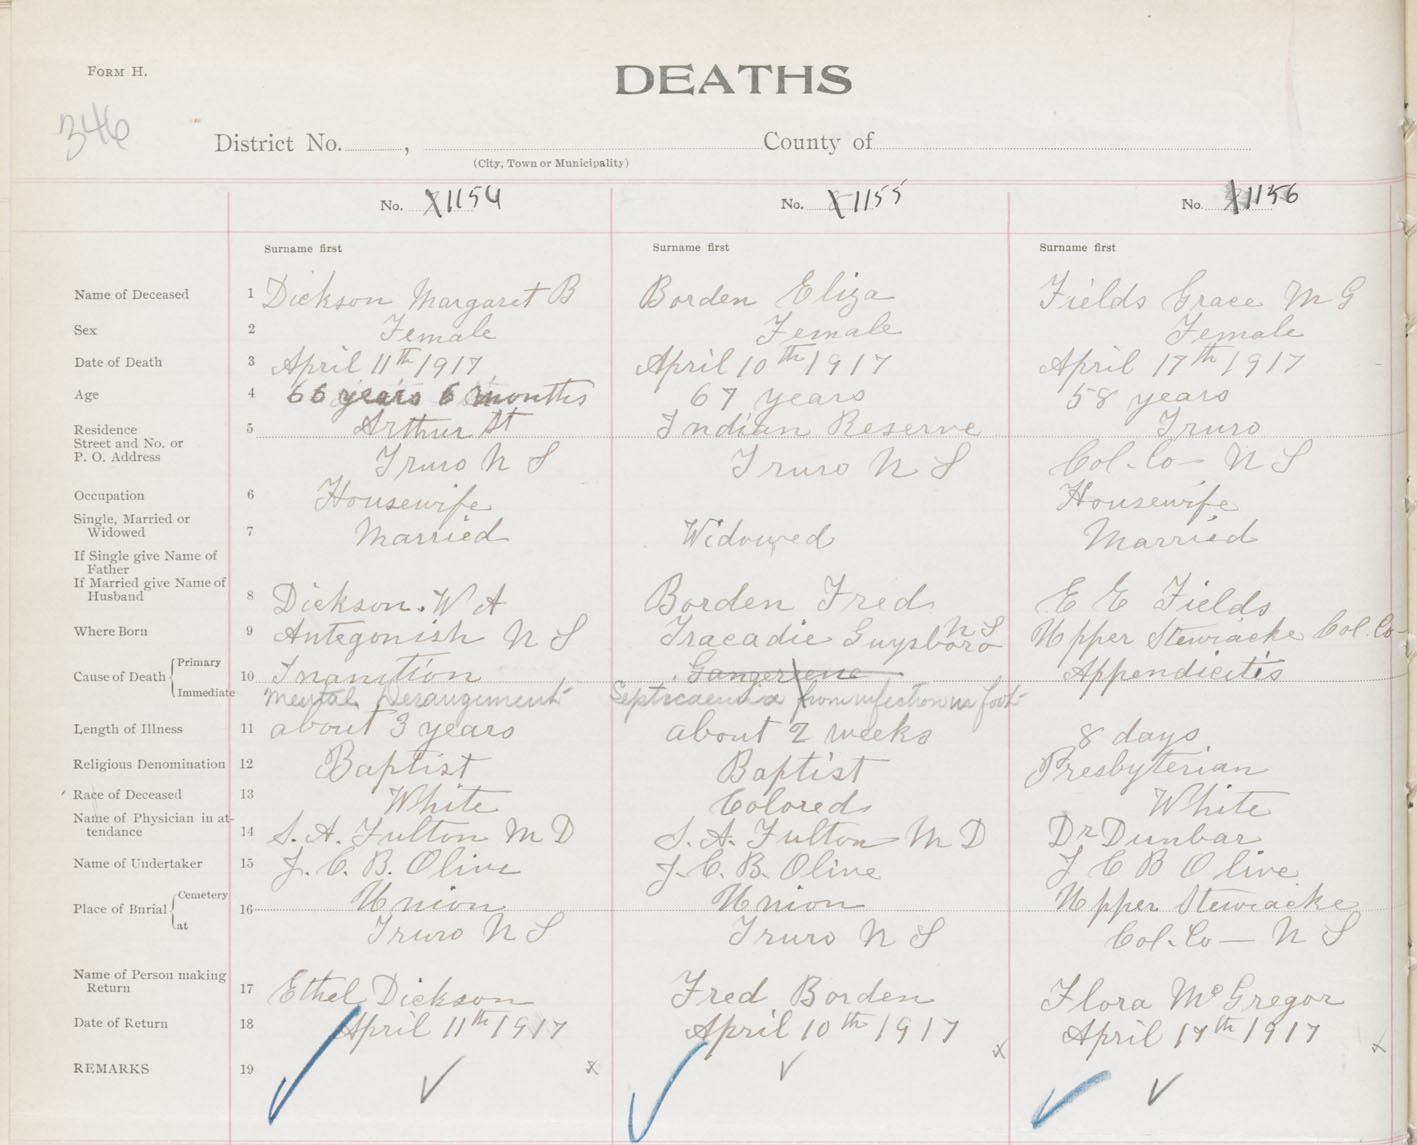 FORM H.
DEATHS
346
District No. , County of
(City, Town or Municipality)
No. X1154 No. X1155 No. 1156
Surname first Surname first Surname first
Name of Deceased 1 Dickson Margaret B Borden Eliza Fields Grace M G
Sex 2 Female Female Female
Date of Death 3 April 11th 1917 April 10th 1917 April 17th 1917
Age 4 66 years 6 months 67 years 58 years
Residence 5 Arthur St Indian Reserve Truro
Street and No. or
P. O. Address Truro N S Truro N S Col. Co - N S
Occupation 6 Housewife Housewife
Single, Married or
Widowed 7 Married Widowed Married
If Single give Name of
Father
If Married give Name of
Husband 8 Dickson. W A Borden Fred E E Fields
Where Born 9 Antegonish N S Tracadie Guysboro N S Upper Stewiacke Col. Co-
Cause of Death Primary 10 Inanition Gangerene Appendicitis
Immediate Mental Derangement Septicaemia from infection in foot
Length of Illness 11 about 3 years about 2 weeks 8 days
Religious Denomination 12 Baptist Baptist Presbyterian
Race of Deceased 13 White Colored White
Name of Physician in at-
tendance 14 S. A. Fulton M D S. A. Fulton M D Dr Dunbar
Name of Undertaker 15 J. C. B. Olive J. C. B. Olive J C B Olive
Place of Burial Cemetery 16 Union Union Upper Stewiacke
at Truro N S Truro N S Col. Co - N S
Name of Person making
Return 17 Ethel Dickson Fred Borden Flora McGregor
Date of Return 18 April 11th 1917 April 10th 1917 April 17th 1917
REMARKS 19 x x x